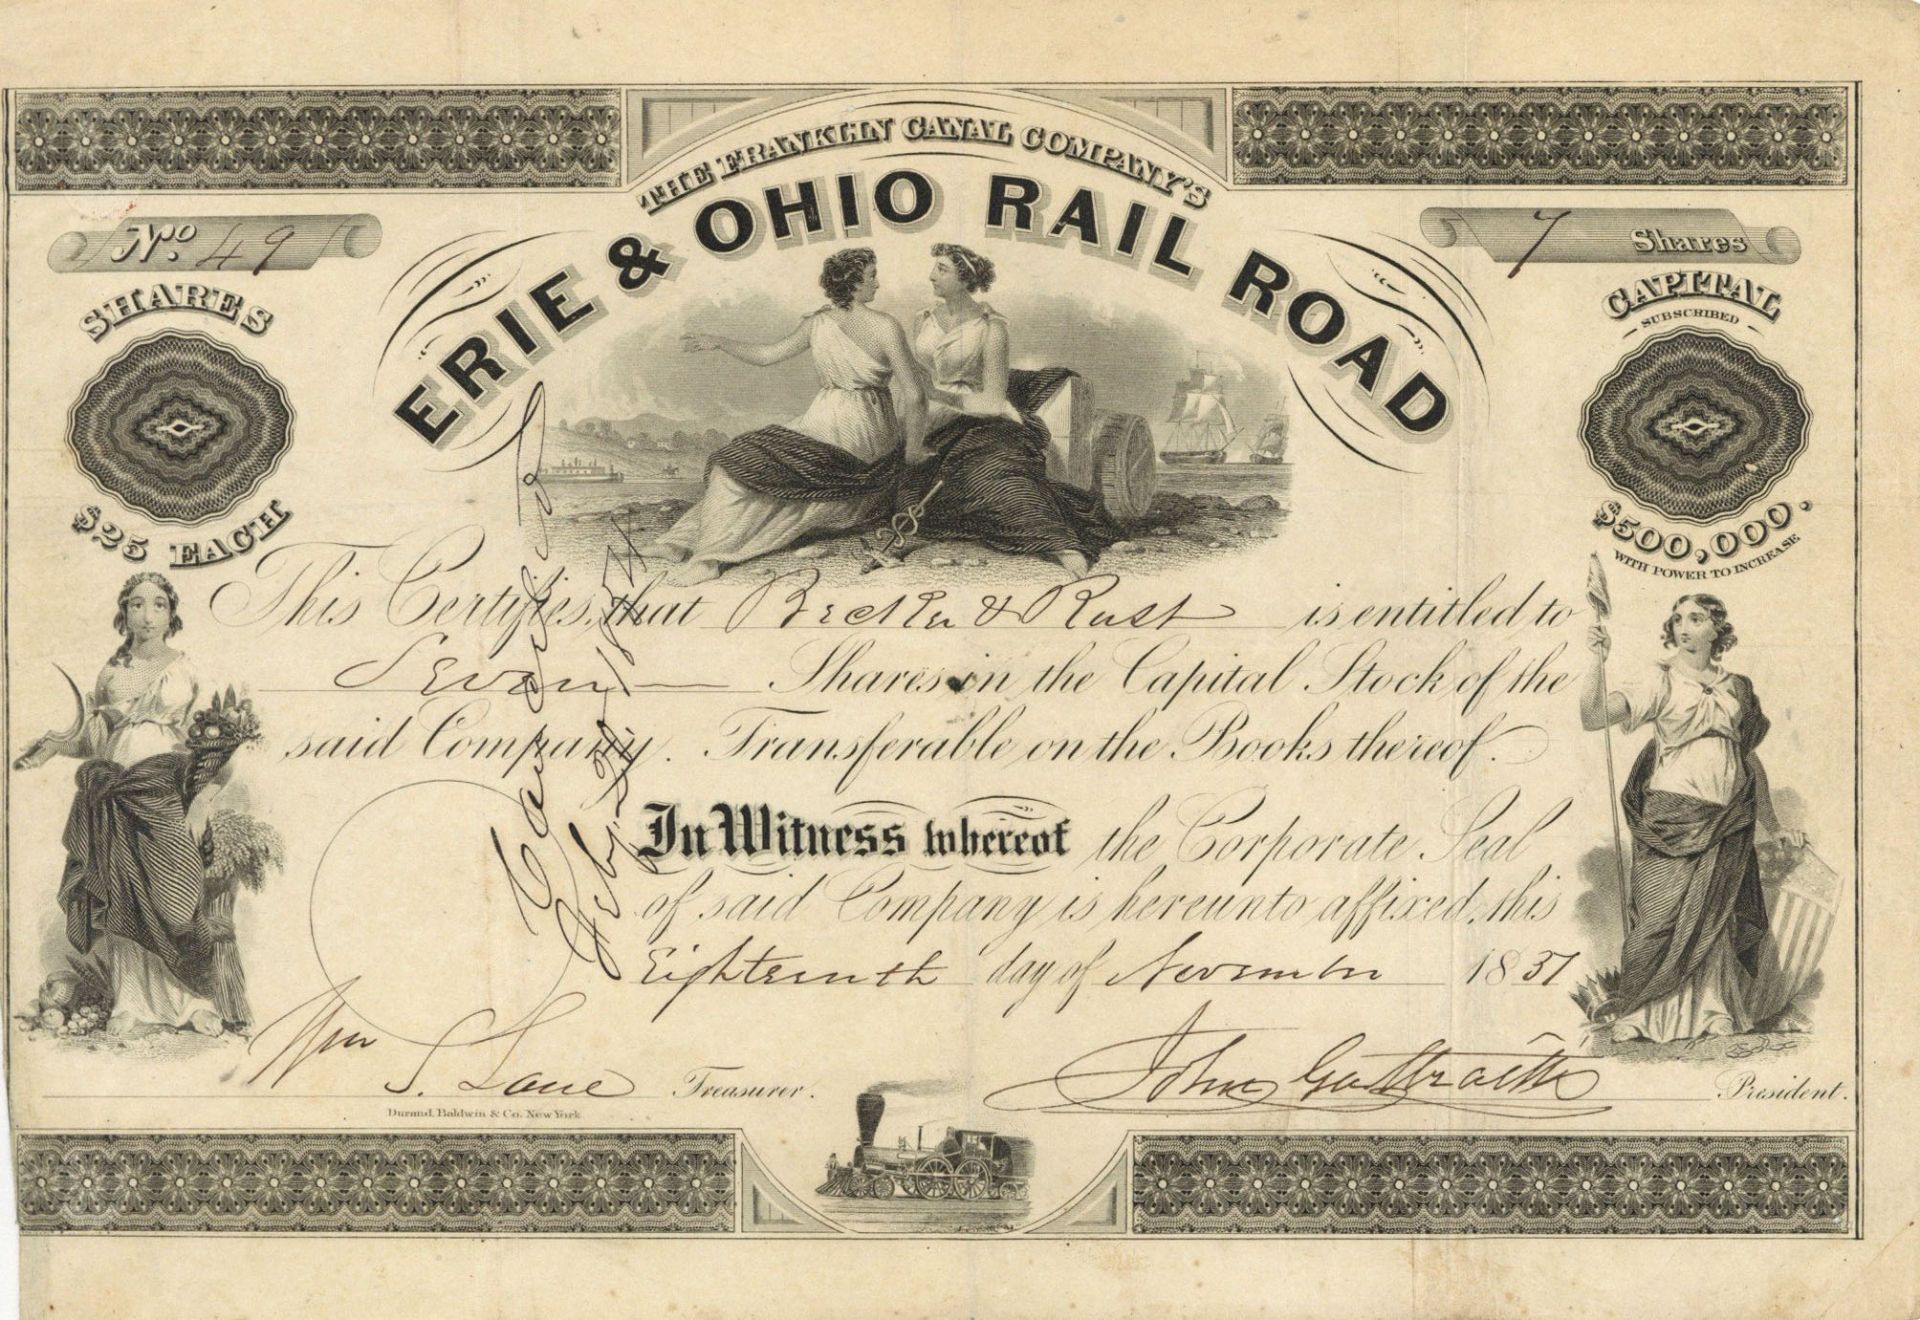 THE FRANKLIN CANAL COMPANY'S
ERIE & OHIO RAIL ROAD
No. 49
7 Shares
SHARES
$25 EACH
CAPITAL
SUBSCRIBED
$500,000,
WITH POWER TO INCREASE
This Certifies, that Becker & Rust is entitled to
Seven Shares in the Capital Stock of the
said Company. Transferable on the Books thereof.
In Witness whereof the Corporate Seal
of said Company is hereunto affixed, this
Eighteenth day of November 18
Wm S. Lane Treasurer.
John Galbraith President.
Durand, Baldwin & Co. New York
Feby. 24. 1854